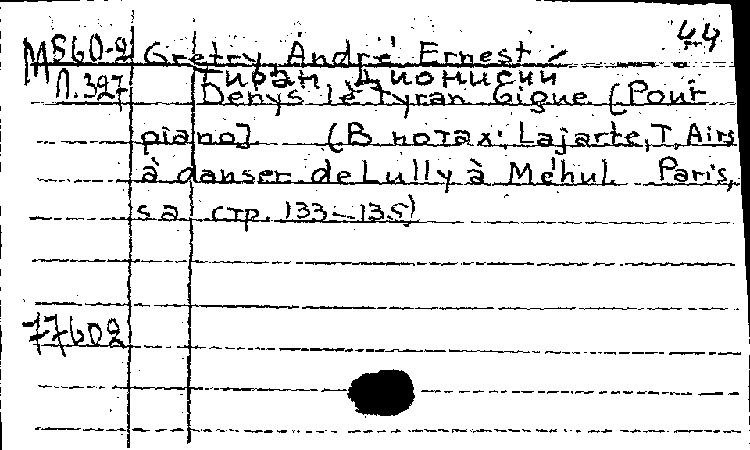 44
М560-2 Gretry, André Ernest
Л.327 Тиран Дионисий
Denys le tyran Gigue [Pour
piano] (В нотах: Lajarte, T. Airs
à danser de Lully à Méhul. Paris,
s a стр. 133-135)
77602